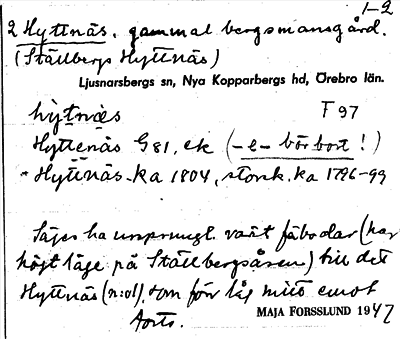 1-2
2 Hyttnäs, gammal bergsmansgård.
(Ställbergs Hyttnäs)
Ljusnarsbergs sn, Nya Kopparbergs hd, Örebro län.
hỳtnæ̀s F 97
Hyttenäs G 81, ek (-e- bör bort!)
Hyttnäs-ka 1804, storsk.ka 1796-99
Säges ha ursprungl. varit fäbodar (har
högt läge på Ställbergsåsen) till det
Hyttnäs (n:o1), som förr låg mitt emot
MAJA FORSSLUND 1947